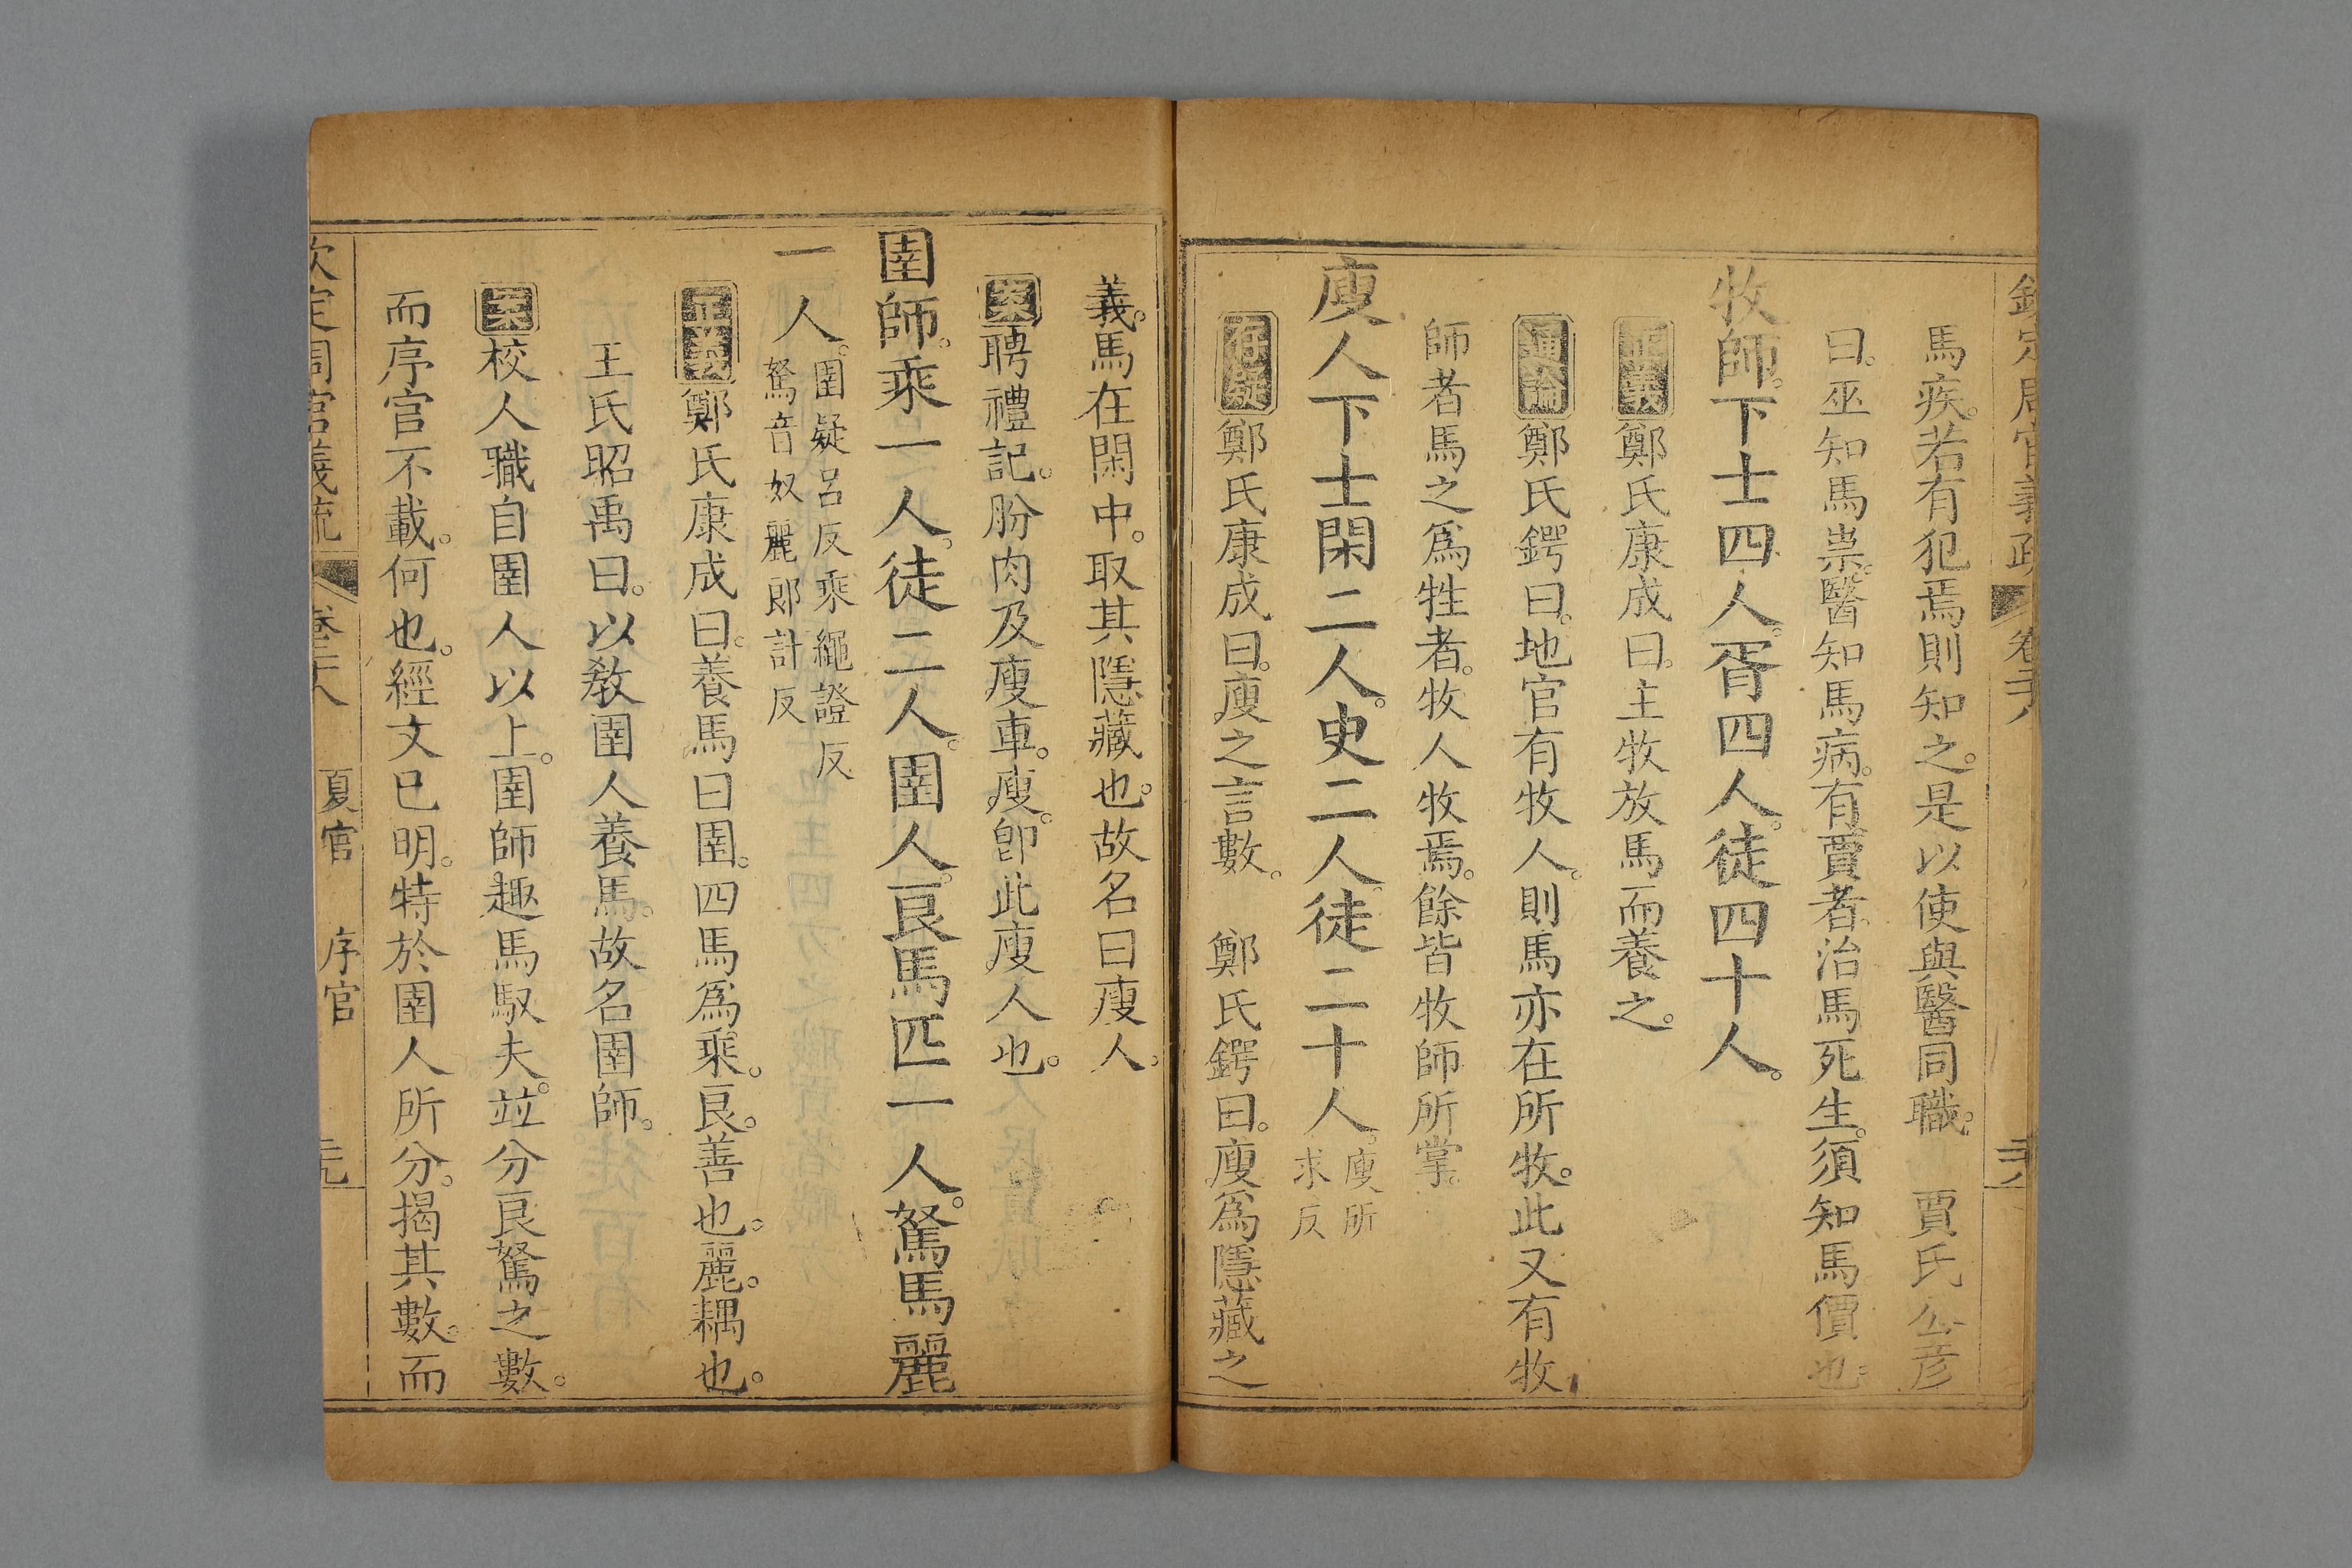 欽定周官義疏 卷二十八 二十八
馬疾。若有犯焉則知之。是以使與醫同職。 賈氏公彥
曰。巫知馬祟。醫知馬病。有賈者。治馬死生。須知馬價也。
牧師。下士四人。胥四人。徒四十人。
正義鄭氏康成曰。主牧放馬而養之。
通論鄭氏鍔曰。地官有牧人。則馬亦在所牧。此又有牧
師者。馬之爲牲者。牧人牧焉。餘皆牧師所掌。
廋人下士閑二人。史二人。徒二十人。廋所
求反
存疑鄭氏康成曰。廋之言數。 鄭氏鍔曰。廋爲隱藏之
義。馬在閑中。取其隱藏也。故名曰廋人。
案聘禮記。肦肉及廋車。廋。卽此廋人也。
圉師。乘一人。徒二人。圉人。良馬匹一人。駑馬麗
一人。圉疑呂反乘繩證反
駑音奴麗郎計反
正義鄭氏康成曰。養馬曰圉。四馬爲乘。良。善也。麗。耦也。
王氏昭禹曰。以敎圉人養馬。故名圉師。
案校人職自圉人以上。圉師趣馬馭夫。竝分良駑之數。
而序官不載。何也。經文已明。特於圉人所分。揭其數。而
欽定周官義疏 卷二十八 夏官 序官 二十九